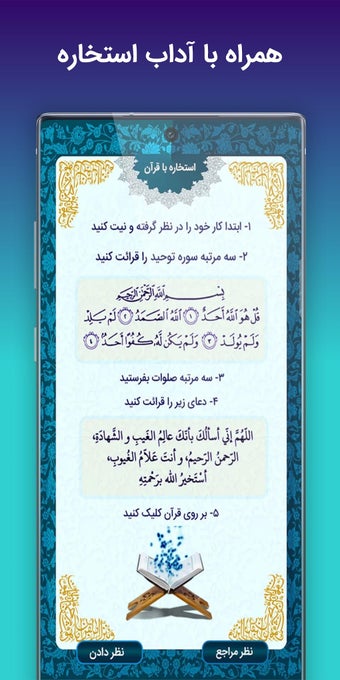 همراه با آداب استخاره
استخاره با قرآن
۱- ابتدا کار خود را در نظر گرفته و نیت کنید
۲- سه مرتبه سوره توحید را قرائت کنید
بِسْمِ اللَّهِ الرَّحْمَٰنِ الرَّحِيمِ
قُلْ هُوَ اللَّهُ أَحَدٌ ۝١ اللَّهُ الصَّمَدُ ۝٢ لَمْ يَلِدْ
وَلَمْ يُولَدْ ۝٣ وَلَمْ يَكُن لَّهُ كُفُوًا أَحَدٌ ۝٤
۳- سه مرتبه صلوات بفرستید
۴- دعای زیر را قرائت کنید
اللَّهُمَّ إنّي أسألُكَ بأنَّكَ عالِمُ الغَيبِ و الشَّهادَةِ،
الرَّحمنُ الرَّحيمُ، و أنتَ عَلاَّمُ الغُيوبِ،
أسْتَخيرُ الله برَحْمتِهِ
۵- بر روی قرآن کلیک کنید
نظر مراجع
نظر دادن